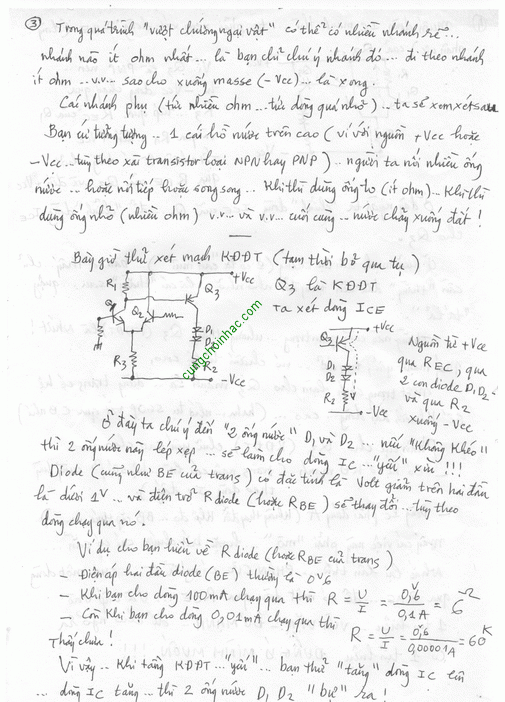 ③ Trong quá trình "vượt chướng ngại vật" có thể có nhiều nhánh rẽ...
nhánh nào ít ohm nhất... là bạn chỉ chú ý nhánh đó... đi theo nhánh
ít ohm ...v.v... sao cho xuống masse (-Vcc)... là xong.
Cái nhánh phụ (tức nhiều ohm ...tức dòng quá nhỏ).. ta sẽ xem xét sau
Bạn cứ tưởng tượng.. 1 cái hồ nước trên cao (ví với nguồn +Vcc hoặc
-Vcc... tùy theo xài transistor loại NPN hay PNP).. người ta nối nhiều ống
nước... hoặc nối tiếp hoặc song song.. Khi thì dùng ống to (ít ohm)... Khi thì
dùng ống nhỏ (nhiều ohm) v.v... và v.v... cuối cùng... nước chảy xuống đất!
Bây giờ thử xét mạch KĐDT (tạm thời bỏ qua tụ)
R1
Q1
Q2
R3
Q3
D1
D2
R2
+Vcc
-Vcc
Q3 là KĐDT
ta xét dòng ICE
+Vcc
Q3
D1
D2
R2
-Vcc
Nguồn từ +Vcc
qua REC, qua
2 con diode D1 D2
và qua R2
xuống -Vcc
cungchoinhac.com
Ở đây ta chú ý đến "2 ống nước" D1 và D2... nếu "không khéo"
thì 2 ống nước này lép xẹp... sẽ làm cho dòng IC ..."yếu" xìu!!!
Diode (cũng như BE của trans) có đặc tính là Volt giảm trên hai đầu
là dưới 1V... và điện trở Rdiode (hoặc RBE) sẽ thay đổi... tùy theo
dòng chạy qua nó.
Ví dụ cho bạn hiểu về Rdiode (hoặc RBE của trans)
- Điện áp hai đầu diode (BE) thường là 0V6
- Khi bạn cho dòng 100mA chạy qua thì R = U/I = 0,6V/0,1A = 6Ω
- Còn khi bạn cho dòng 0,01mA chạy qua thì
R = U/I = 0,6V/0,00001A = 60K
Thấy chưa!
Vì vậy.. Khi tầng KĐDT "yếu"... bạn thử "tăng" dòng IC lên
... dòng IC tăng... thì 2 ống nước D1 D2 "bự" ra!